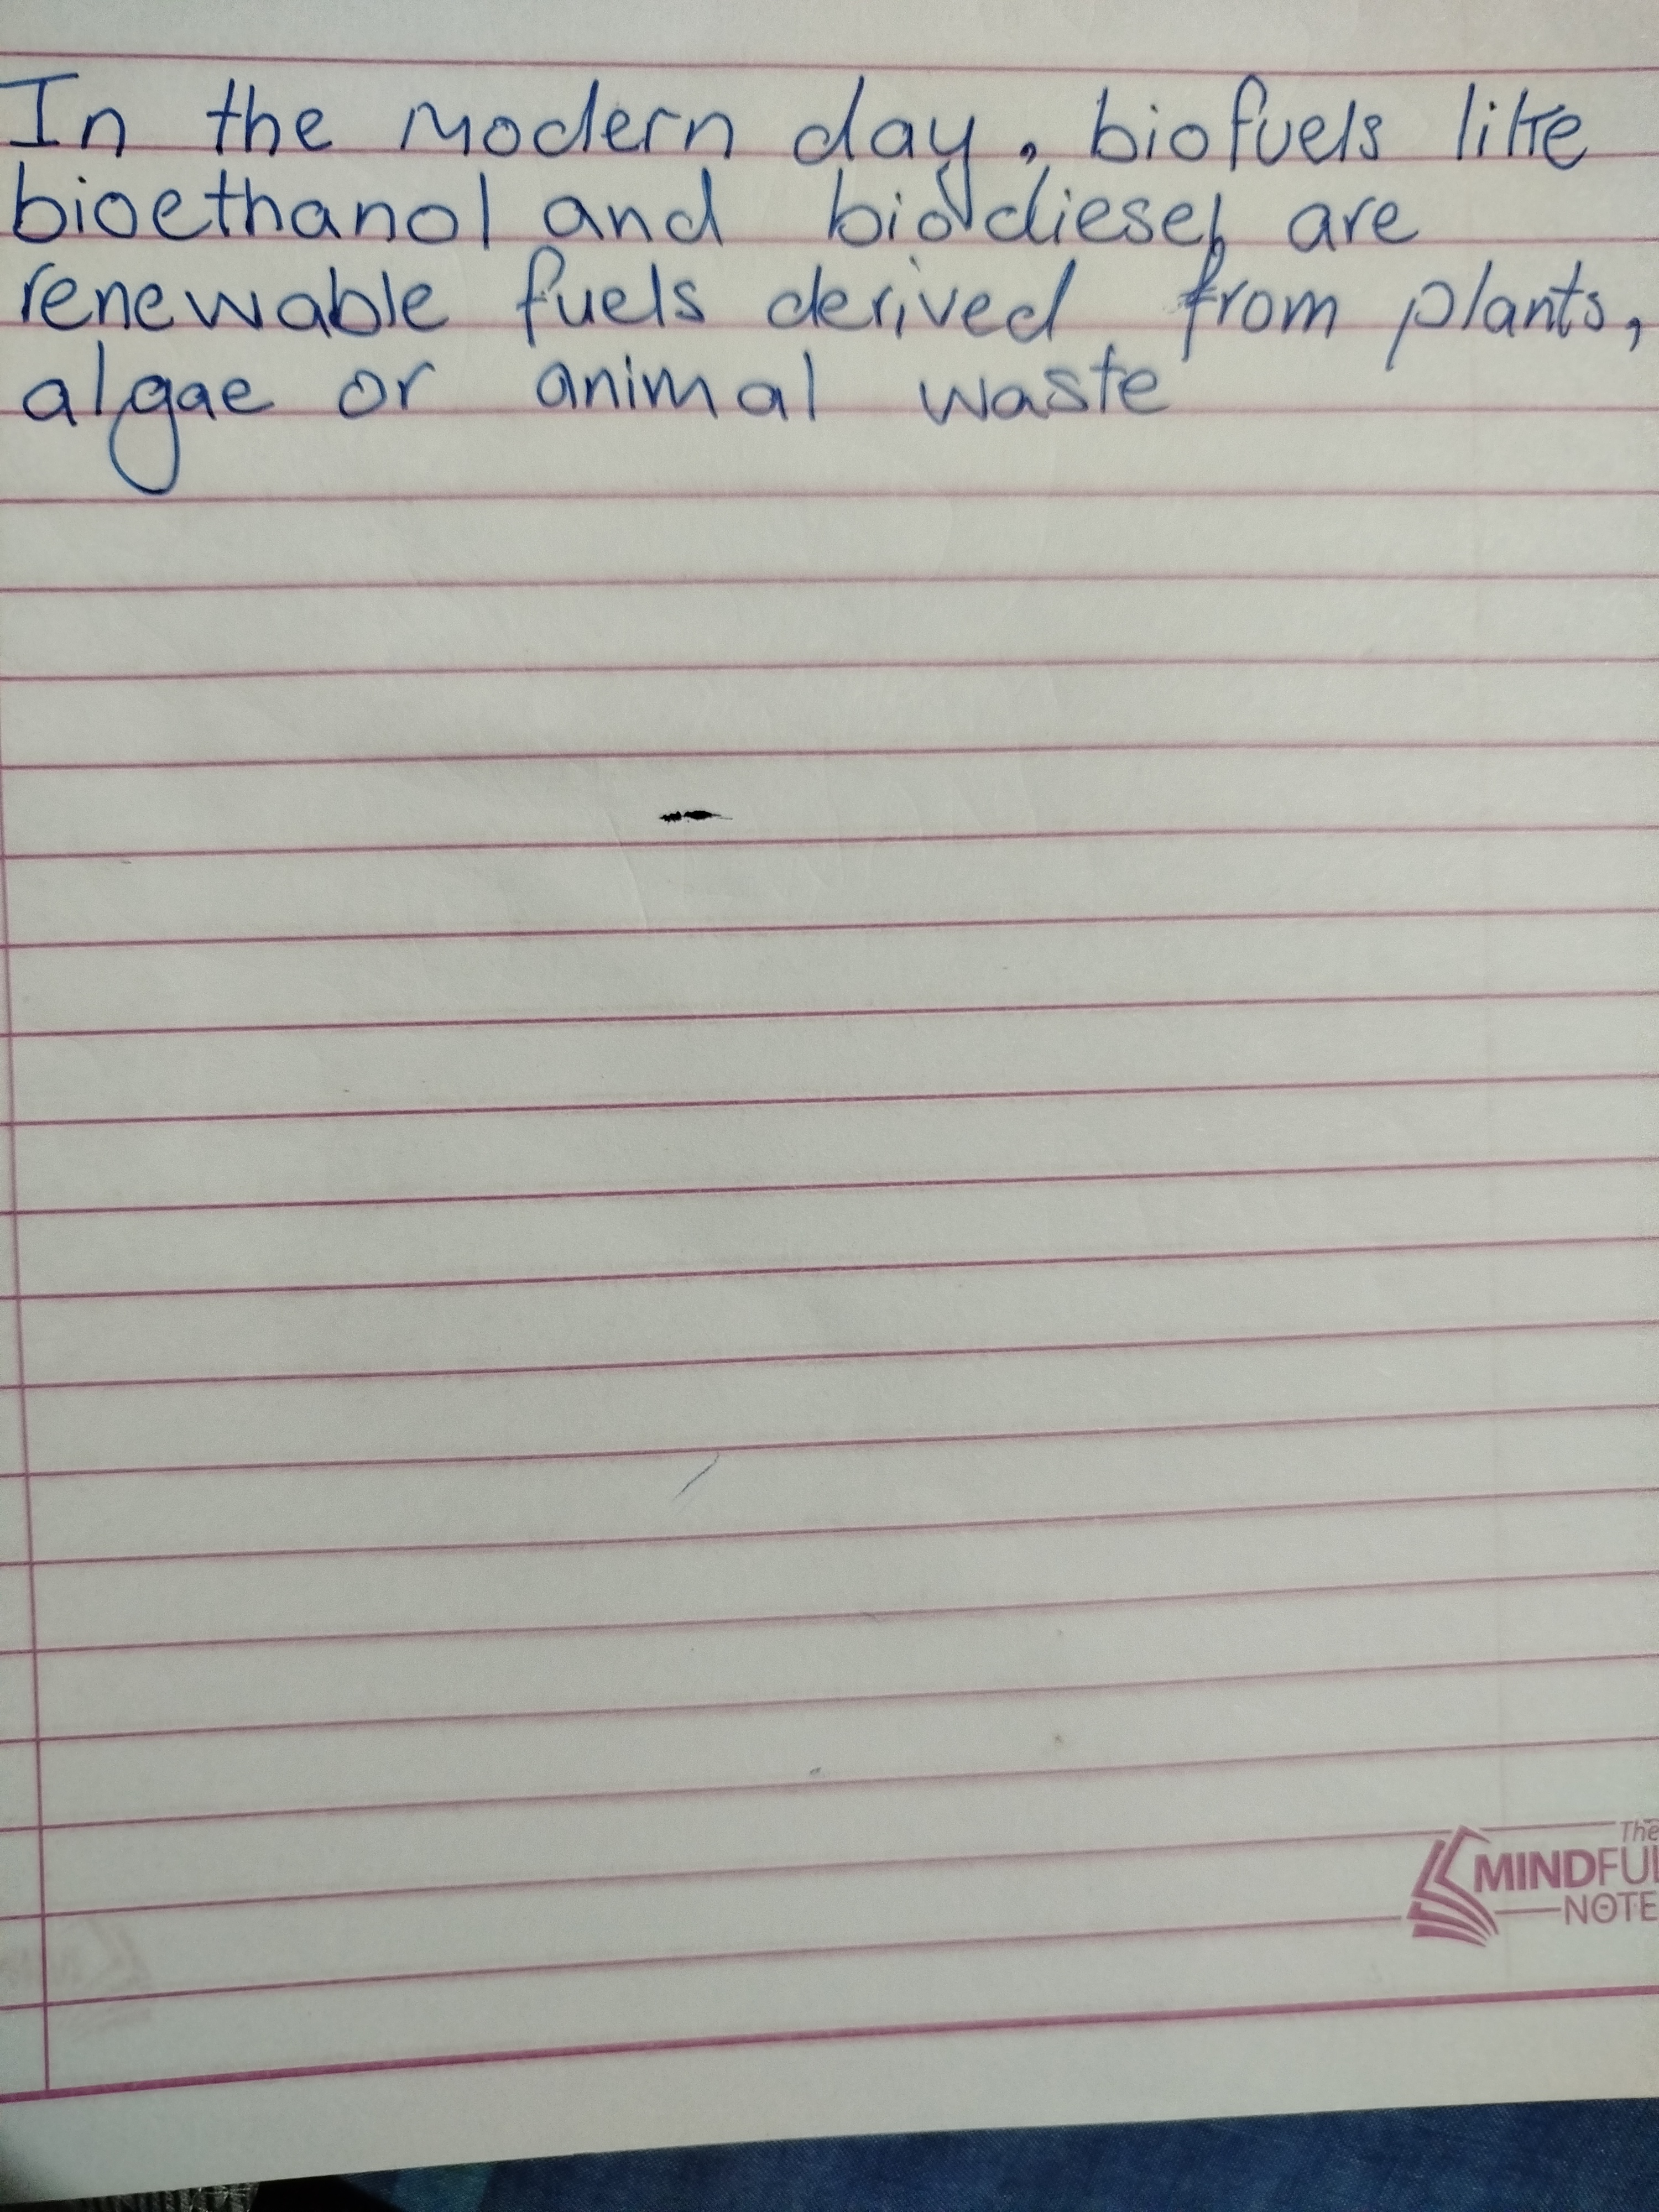 In the modern day, biofuels like
bioethanol and biodiesel are
renewable fuels derived from plants,
algae or animal waste
The
MINDFUL
NOTE